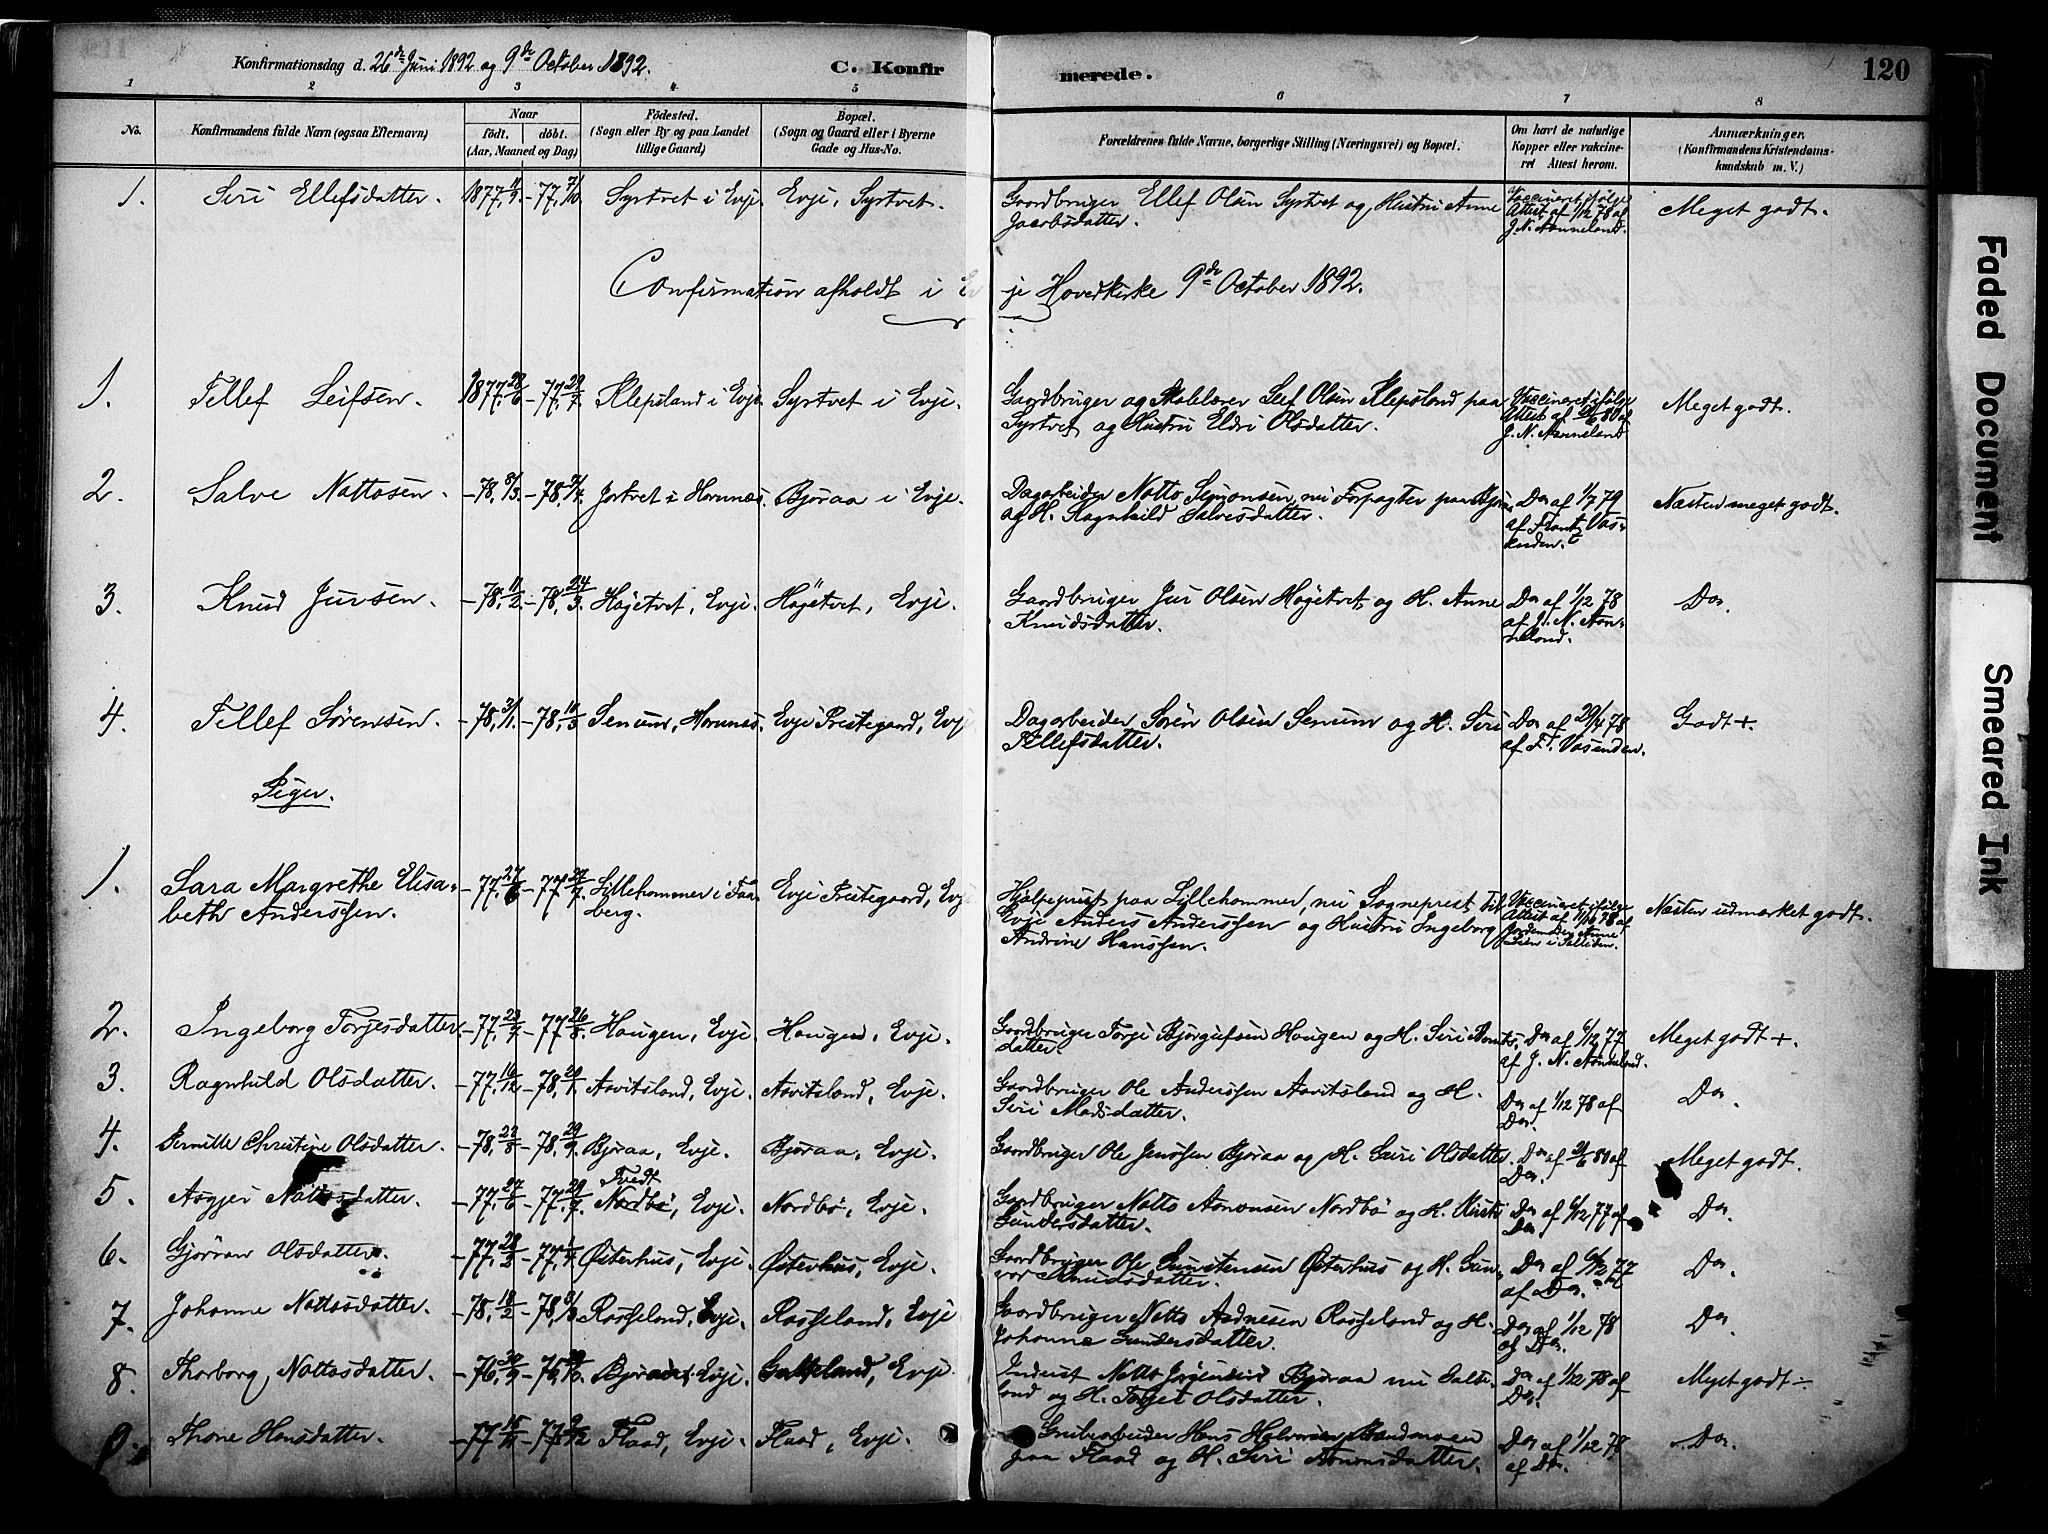 Konfirmationsdag d. 26de Juni 1892 og 9de October 1892.
C. Konfirmerede.
120
1 2 3 4 5 6 7 8
No.
Konfirmandens fulde Navn (ogsaa Efternavn)
Naar
födt. döbt.
(Aar, Maaned og Dag)
Födested.
(Sogn eller By og paa Landet
tillige Gaard)
Bopæl.
(Sogn og Gaard eller i Byerne
Gade og Hus-No.
Forældrenes fulde Navne, borgerlige Stilling (Næringsvei) og Bopæl.
Om havt de naturlige
Kopper eller vakcine-
ret Attest herom.
Anmærkninger,
(Konfirmandens Kristendoms-
kundskab m. V.)
1. Siri Ellefsdatter. 1877, 4/9. -77, 7/10. Syrtvet i Evje. Evje, Syrtvet.
Gaardbruger Ellef Olsen Syrtvet og Hustru Anne
Jacobsdatter.
Vaccineret ifølge
Attest af 1/12 78 af
J. N. Aanneland.
Meget godt.
Confirmation afholdt i Evje Hovedkirke 9de October 1892.
1. Tellef Leifsen. 1877, 28/6 -77, 29/7. Klepsland i Evje. Syrtvet i Evje.
Gaardbruger og Skolelærer Leif Olsen Klepsland paa
Syrtvet og Hustru Eldri Olsdatter.
Vaccineret ifølge
Attest af 21/6 80 af
J. N. Aanneland
Meget godt.
2. Salve Nottosen. -78, 8/3. -78, 21/4. Jortvet i Hornnes. Bjoraa i Evje.
Dagarbeider Notto Simonsen, nu Forpagter paa Bjoraa
og H. Ragnhild Salvesdatter.
Do af 1/7 79
Næsten meget godt.
3. Knud Jursen. -78, 11/2 -78, 24/3. Högetvet, Evje. Högetvet, Evje.
Gaardbruger Jur Olsen Högetvet og H. Anne
Knudsdatter.
Do af 1/12 78
af J. N. Aan-
neland.
Do.
4. Tellef Sörensen. -78, 3/1. -78, 10/3 Senum, Hornnes. Evje Prestegaard, Evje
Dagarbeider Sören Olsen Senum og H. Siri
Tellefsdatter.
Do af 29/4 78
af F. Vasenden.
Godt +.
Piger.
1. Sara Margrethe Elisa-
beth Anderssen.
-77, 27/6 -77, 22/7. Lillehammer i Faa-
berg.
Evje Prestegaard, Evje
Hjælpeprest paa Lillehammer, nu Sogneprest til
Evje Anders Anderssen og Hustru Ingeborg
Andrine Hanssen.
Vaccineret ifølge
Attest af 11/10 78 af
Næsten udmærket godt.
2. Ingeborg Torjesdatter -77, 23/7 -77, 26/8. Haugen, Evje. Haugen, Evje.
Gaardbruger Torje Bjorgulfsen Haugen og H. Siri
datter.
Do af 6/12 77
af J. N. Aanneland.
Meget godt +.
3. Ragnhild Olsdatter. -77, 16/12 -78, 20/1. Aavitsland, Evje. Aavitsland, Evje.
Gaardbruger Ole Anderssen Aavitsland og H.
Siri Madsdatter.
Do af 1/12 78 af
Do.
Do.
4. Pernille Christine Olsdatter. -78, 22/8 -78, 29/9. Bjoraa, Evje. Bjoraa, Evje.
Gaardbruger Ole Jensen Bjoraa og H. Guri Olsdatter.
Do af 21/6 80 af
Do.
Meget godt.
5. Asgjer Nottosdatter. -77, 27/6 -77, 29/7. Tvedt
Nordbö, Evje. Nordbö, Evje.
Gaardbruger Notto Aanonsen Nordbö og H.
Gundersdatter.
Do af 6/12 77 af
Do
Do.
6. Gjöran Olsdatter. -77, 28/2 -77, 1/4. Østerhus, Evje. Østerhus, Evje.
Gaardbruger Ole Gunstensen Østerhus og H. Gun-
vor Knudsdatter.
Do af 6/12 77
af Do.
Do.
7. Johanne Nottosdatter. -78, 10/2 -78, 31/3. Rosseland, Evje. Rosseland, Evje
Gaardbruger Notto Andresen Rosseland og H.
Johanne Gundersdatter.
Do af 1/12 78
af Do.
Do.
8. Thorborg Nottosdatter. -76, 20/9 -76, Bjoraa, Evje. Galteland, Evje.
Inderst Notto Jörgensen Bjoraa nu Galte-
land og H. Torjer Olsdatter.
Do af 1/12 78 af
Do.
Meget godt ÷
9. Thone Hansdatter. -77, 15/11 -77, 9/12 Flaad, Evje. Flaad, Evje.
Grubearbeider Hans Halvorsen Sandmoen
paa Flaad og H. Siri Aanonsdatter.
Do af 1/12 78
af Do.
Do.
Faded Document
Smeared Ink